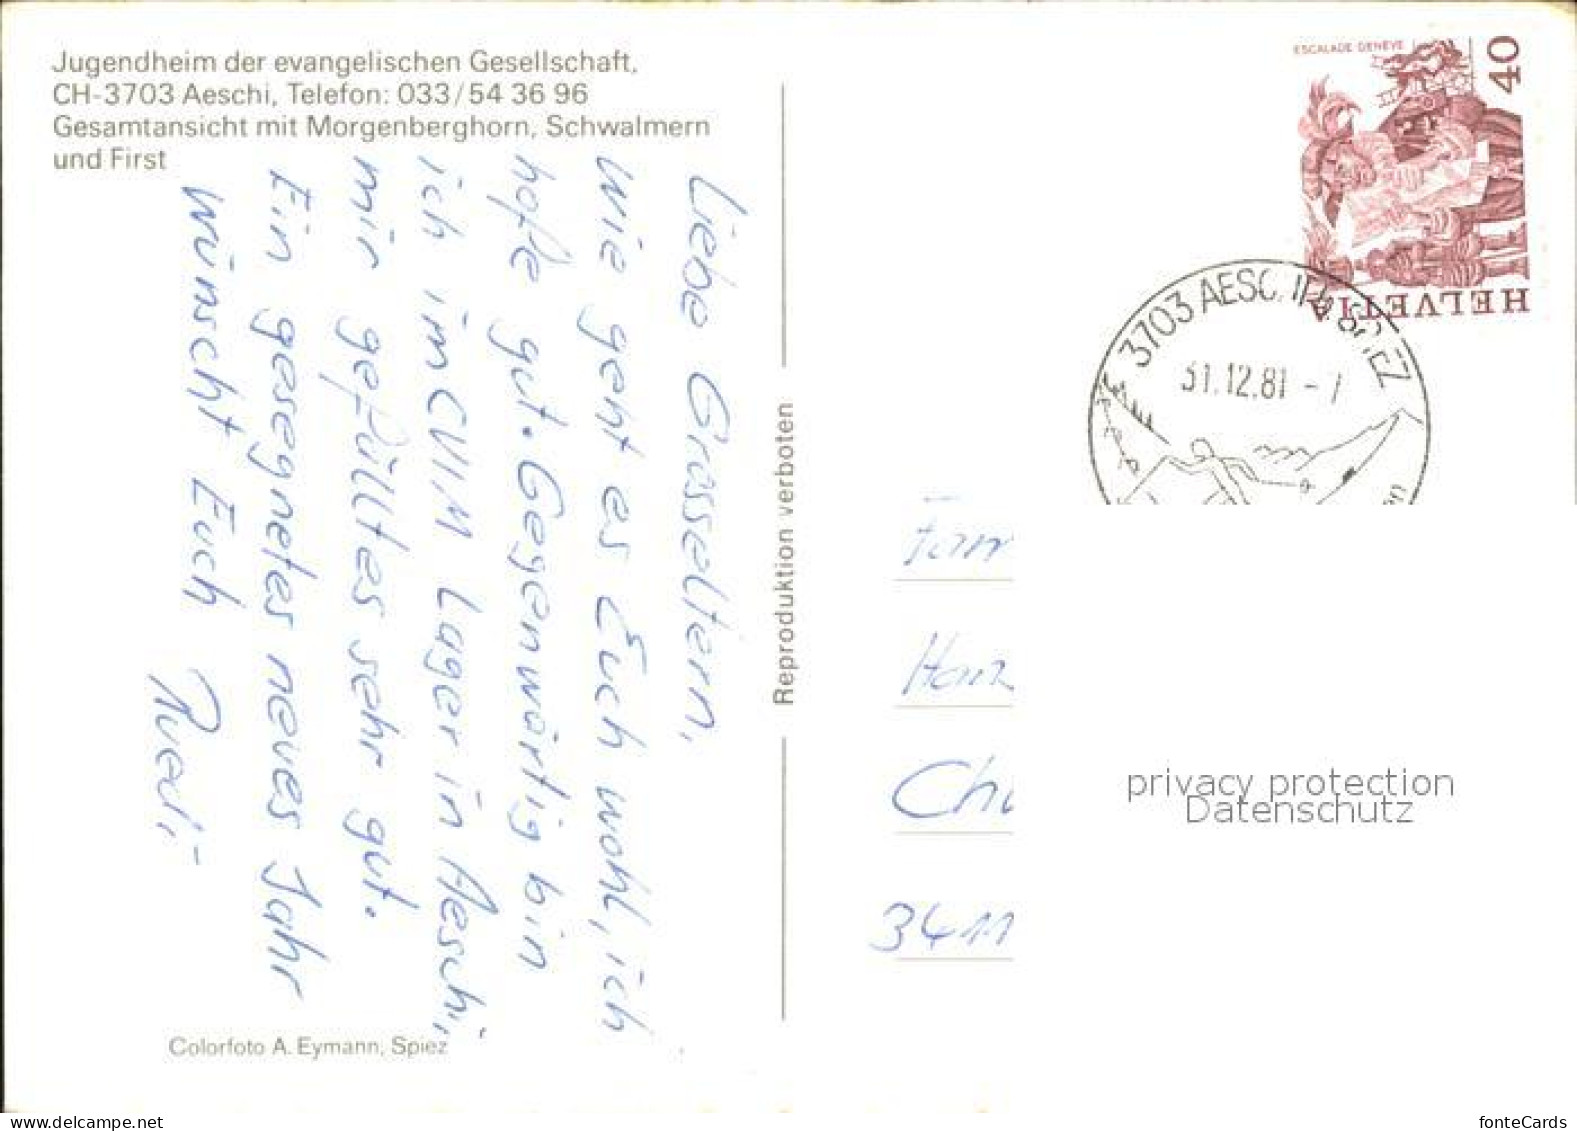 Jugendheim der evangelischen Gesellschaft,
CH-3703 Aeschi, Telefon: 033/54 36 96
Gesamtansicht mit Morgenberghorn, Schwalmern
und First
Liebe Grosseltern,
Wie geht es Euch wohl, ich
hoffe gut. Gegenwärtig bin
ich im CVJM Lager in Aeschi,
mir gefälltes sehr gut.
Ein gesegnetes neues Jahr
wünscht Euch
Ruedi
Colorfoto A. Eymann, Spiez
Reproduktion verboten
ESCALADE GENEVE
40
HELVETIA
3703 AESCHI B. SPIEZ
31.12.81 - 7
Fam
Chu
3411
privacy protection
Datenschutz
fonteCards